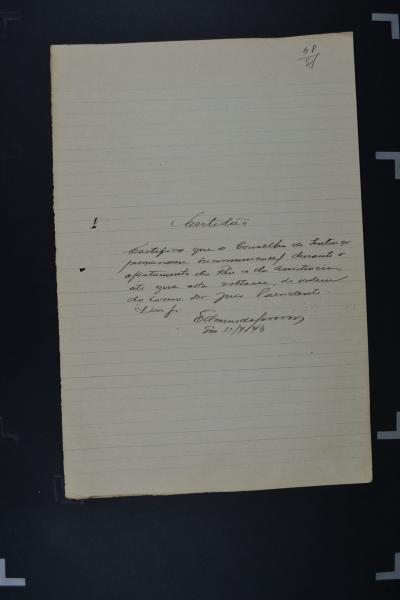 68
Certidão
Certifico que o Conselho de Sentença
permaneceu incommunicavel durante o
afastamento do Réu e da assistencia,
até que esta voltasse, de ordem
do Exmo. Dr. Juiz Presidente
Dou fé.
Em 1º/9/43